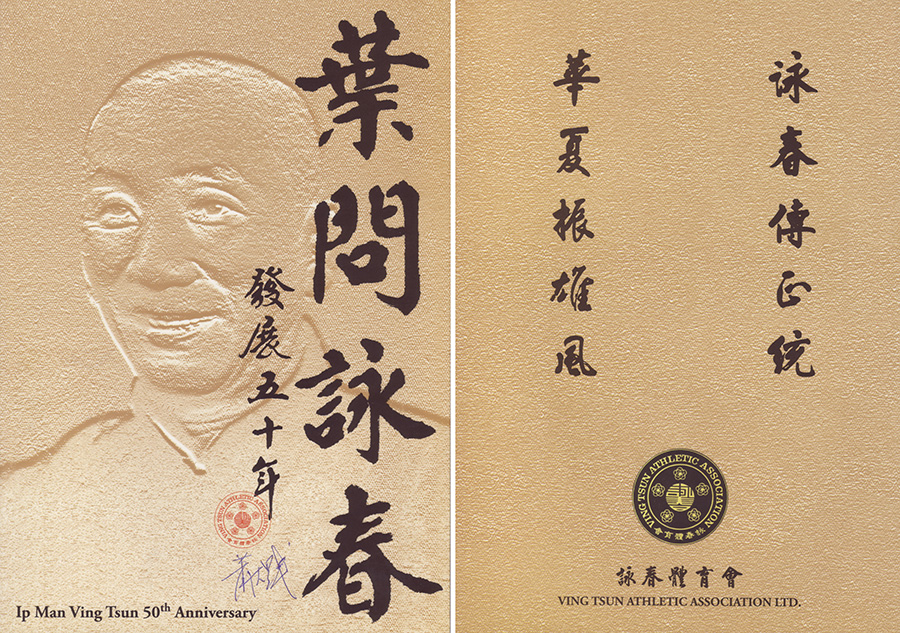 葉問詠春
發展五十年
VING TSUN ATHLETIC ASSOCIATION
詠春體育會
Ip Man Ving Tsun 50th Anniversary
詠春傳正統
華夏振雄風
VING TSUN ATHLETIC ASSOCIATION
詠春體育會
詠春體育會
VING TSUN ATHLETIC ASSOCIATION LTD.